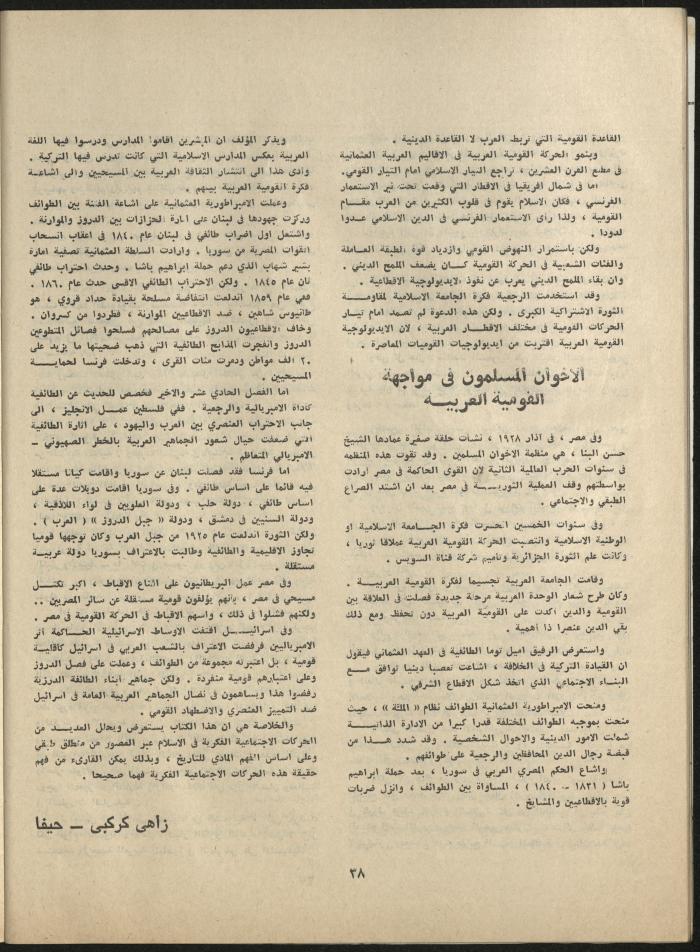 القاعدة القومية التي تربط العرب لا القاعدة الدينية .
وبنمو الحركة القومية العربية في الاقاليم العربية العثمانية
في مطلع القرن العشرين ، تراجع التيار الاسلامي امام التيار القومي.
اما في شمال افريقيا في الاقطار التي وقعت تحت نير الاستعمار
الفرنسي ، فكان الاسلام يقوم في قلوب الكثيرين من العرب مقام
القومية ، ولذا رأى الاستعمار الفرنسي في الدين الاسلامي عدوا
لدودا .
ولكن باستمرار النهوض القومي وازدياد قوة الطبقة العاملة
والفئات الشعبية في الحركة القومية كان يضعف الملمح الديني .
وان بقاء الملمح الديني يعرب عن نفوذ الايديولوجية الاقطاعية .
وقد استخدمت الرجعية فكرة الجامعة الاسلامية لمقاومة
الثورة الاشتراكية الكبرى . ولكن هذه الدعوة لم تصمد امام تيار
الحركات القومية في مختلف الاقطار العربية ، لان الايديولوجية
القومية العربية اقتربت من ايديولوجيات القوميات المعاصرة .
الاخوان المسلمون في مواجهة
القومية العربية
وفي مصر ، في آذار ١٩٢٨ ، نشأت حلقة صغيرة عمادها الشيخ
حسن البنا ، هي منظمة الاخوان المسلمين . وقد تقوت هذه المنظمه
في سنوات الحرب العالمية الثانية لان القوى الحاكمة في مصر ارادت
بواسطتهم وقف العملية الثورية في مصر بعد ان اشتد الصراع
الطبقي والاجتماعي .
وفي سنوات الخمسين انحسرت فكرة الجامعة الاسلامية او
الوطنية الاسلامية وانتصبت الحركة القومية العربية عملاقا ثوريا ،
وكانت علم الثورة الجزائرية وتأميم شركة قناة السويس .
وقامت الجامعة العربية تجسيما لفكرة القومية العربية .
وكان طرح شعار الوحدة العربية مرحلة جديدة فصلت في العلاقة بين
القومية والدين اكدت على القومية العربية دون تحفظ ومع ذلك
بقي الدين عنصرا ذا اهمية .
واستعرض الرفيق اميل توما الطائفية في العهد العثماني فيقول
ان القيادة التركية في الخلافة ، اشاعت تعصبا دينيا توافق مع
البناء الاجتماعي الذي اتخذ شكل الاقطاع الشرقي .
ومنحت الامبراطورية العثمانية الطوائف نظام « الملة » ، حيث
منحت بموجبه الطوائف المختلفة قدرا كبيرا من الادارة الذاتية
شملت الامور الدينية والاحوال الشخصية . وقد شدد هذا من
قبضة رجال الدين المحافظين والرجعية على طوائفهم .
واشاع الحكم المصري العربي في سوريا ، بعد حملة ابراهيم
باشا ( ١٨٣١ - ١٨٤٠ ) ، المساواة بين الطوائف ، وانزل ضربات
قوية بالاقطاعيين والمشايخ .
ويذكر المؤلف ان المبشرين اقاموا المدارس ودرسوا فيها اللغة
العربية بعكس المدارس الاسلامية التي كانت تدرس فيها التركية .
وادى هذا الى انتشار الثقافة العربية بين المسيحيين والى اشاعة
فكرة القومية العربية بينهم .
وعملت الامبراطورية العثمانية على اشاعة الفتنة بين الطوائف
وركزت جهودها في لبنان على اثارة الحزازات بين الدروز والموارنة .
واشتعل اول اضراب طائفي في لبنان عام ١٨٤٠ في اعقاب انسحاب
القوات المصرية من سوريا . وارادت السلطة العثمانية تصفية امارة
بشير شهاب الذي دعم حملة ابراهيم باشا . وحدث احتراب طائفي
ثان عام ١٨٤٥ . ولكن الاحتراب الطائفي الاقسى حدث عام ١٨٦٠ .
ففي عام ١٨٥٩ اندلعت انتفاضة مسلحة بقيادة حداد قروي ، هو
طانيوس شاهين ، ضد الاقطاعيين الموارنة ، فطردوا من كسروان .
وخاف الاقطاعيون الدروز على مصالحهم فسلحوا فصائل المتطوعين
الدروز وانفجرت المذابح الطائفية التي ذهب ضحيتها ما يزيد على
٢٠ الف مواطن ودمرت مئات القرى ، وتدخلت فرنسا لحماية
المسيحيين .
اما الفصل الحادي عشر والاخير فخصص للحديث عن الطائفية
كأداة الامبريالية والرجعية . ففي فلسطين عمل الانجليز ، الى
جانب الاحتراب العنصري بين العرب واليهود ، على اثارة الطائفية
التي ضعفت حيال شعور الجماهير العربية بالخطر الصهيوني -
الامبريالي المتعاظم .
اما فرنسا فقد فصلت لبنان عن سوريا واقامت كيانا مستقلا
فيه قائما على اساس طائفي . وفي سوريا اقامت دويلات عدة على
اساس طائفي ، دولة حلب ، ودولة العلويين في لواء اللاذقية ،
ودولة السنيين في دمشق ، ودولة « جبل الدروز » ( العرب ) .
ولكن الثورة اندلعت عام ١٩٢٥ من جبل العرب وكان توجهها قوميا
تجاوز الاقليمية والطائفية وطالبت بالاعتراف بسوريا دولة عربية
مستقلة .
وفي مصر عمل البريطانيون على اقناع الاقباط ، اكبر تكتل
مسيحي في مصر ، بأنهم يؤلفون قومية مستقلة عن سائر المصريين ..
ولكنهم فشلوا في ذلك ، واسهم الاقباط في الحركة القومية في مصر .
وفي اسرائيل اقتفت الاوساط الاسرائيلية الحاكمة اثر
الامبرياليين فرفضت الاعتراف بالشعب العربي في اسرائيل كأقلية
قومية ، بل اعتبرته مجموعة من الطوائف ، وعملت على فصل الدروز
وعلى اعتبارهم قومية منفردة . ولكن جماهير ابناء الطائفة الدرزية
رفضوا هذا ويساهمون في نضال الجماهير العربية العامة في اسرائيل
ضد التمييز العنصري والاضطهاد القومي .
والخلاصة هي ان هذا الكتاب يستعرض ويحلل العديد من
الحركات الاجتماعية الفكرية في الاسلام عبر العصور من منطلق طبقي
وعلى اساس الفهم المادي للتاريخ ، وبذلك يمكن القارىء من فهم
حقيقة هذه الحركات الاجتماعية الفكرية فهما صحيحا .
زاهي كركبي - حيفا
٣٨